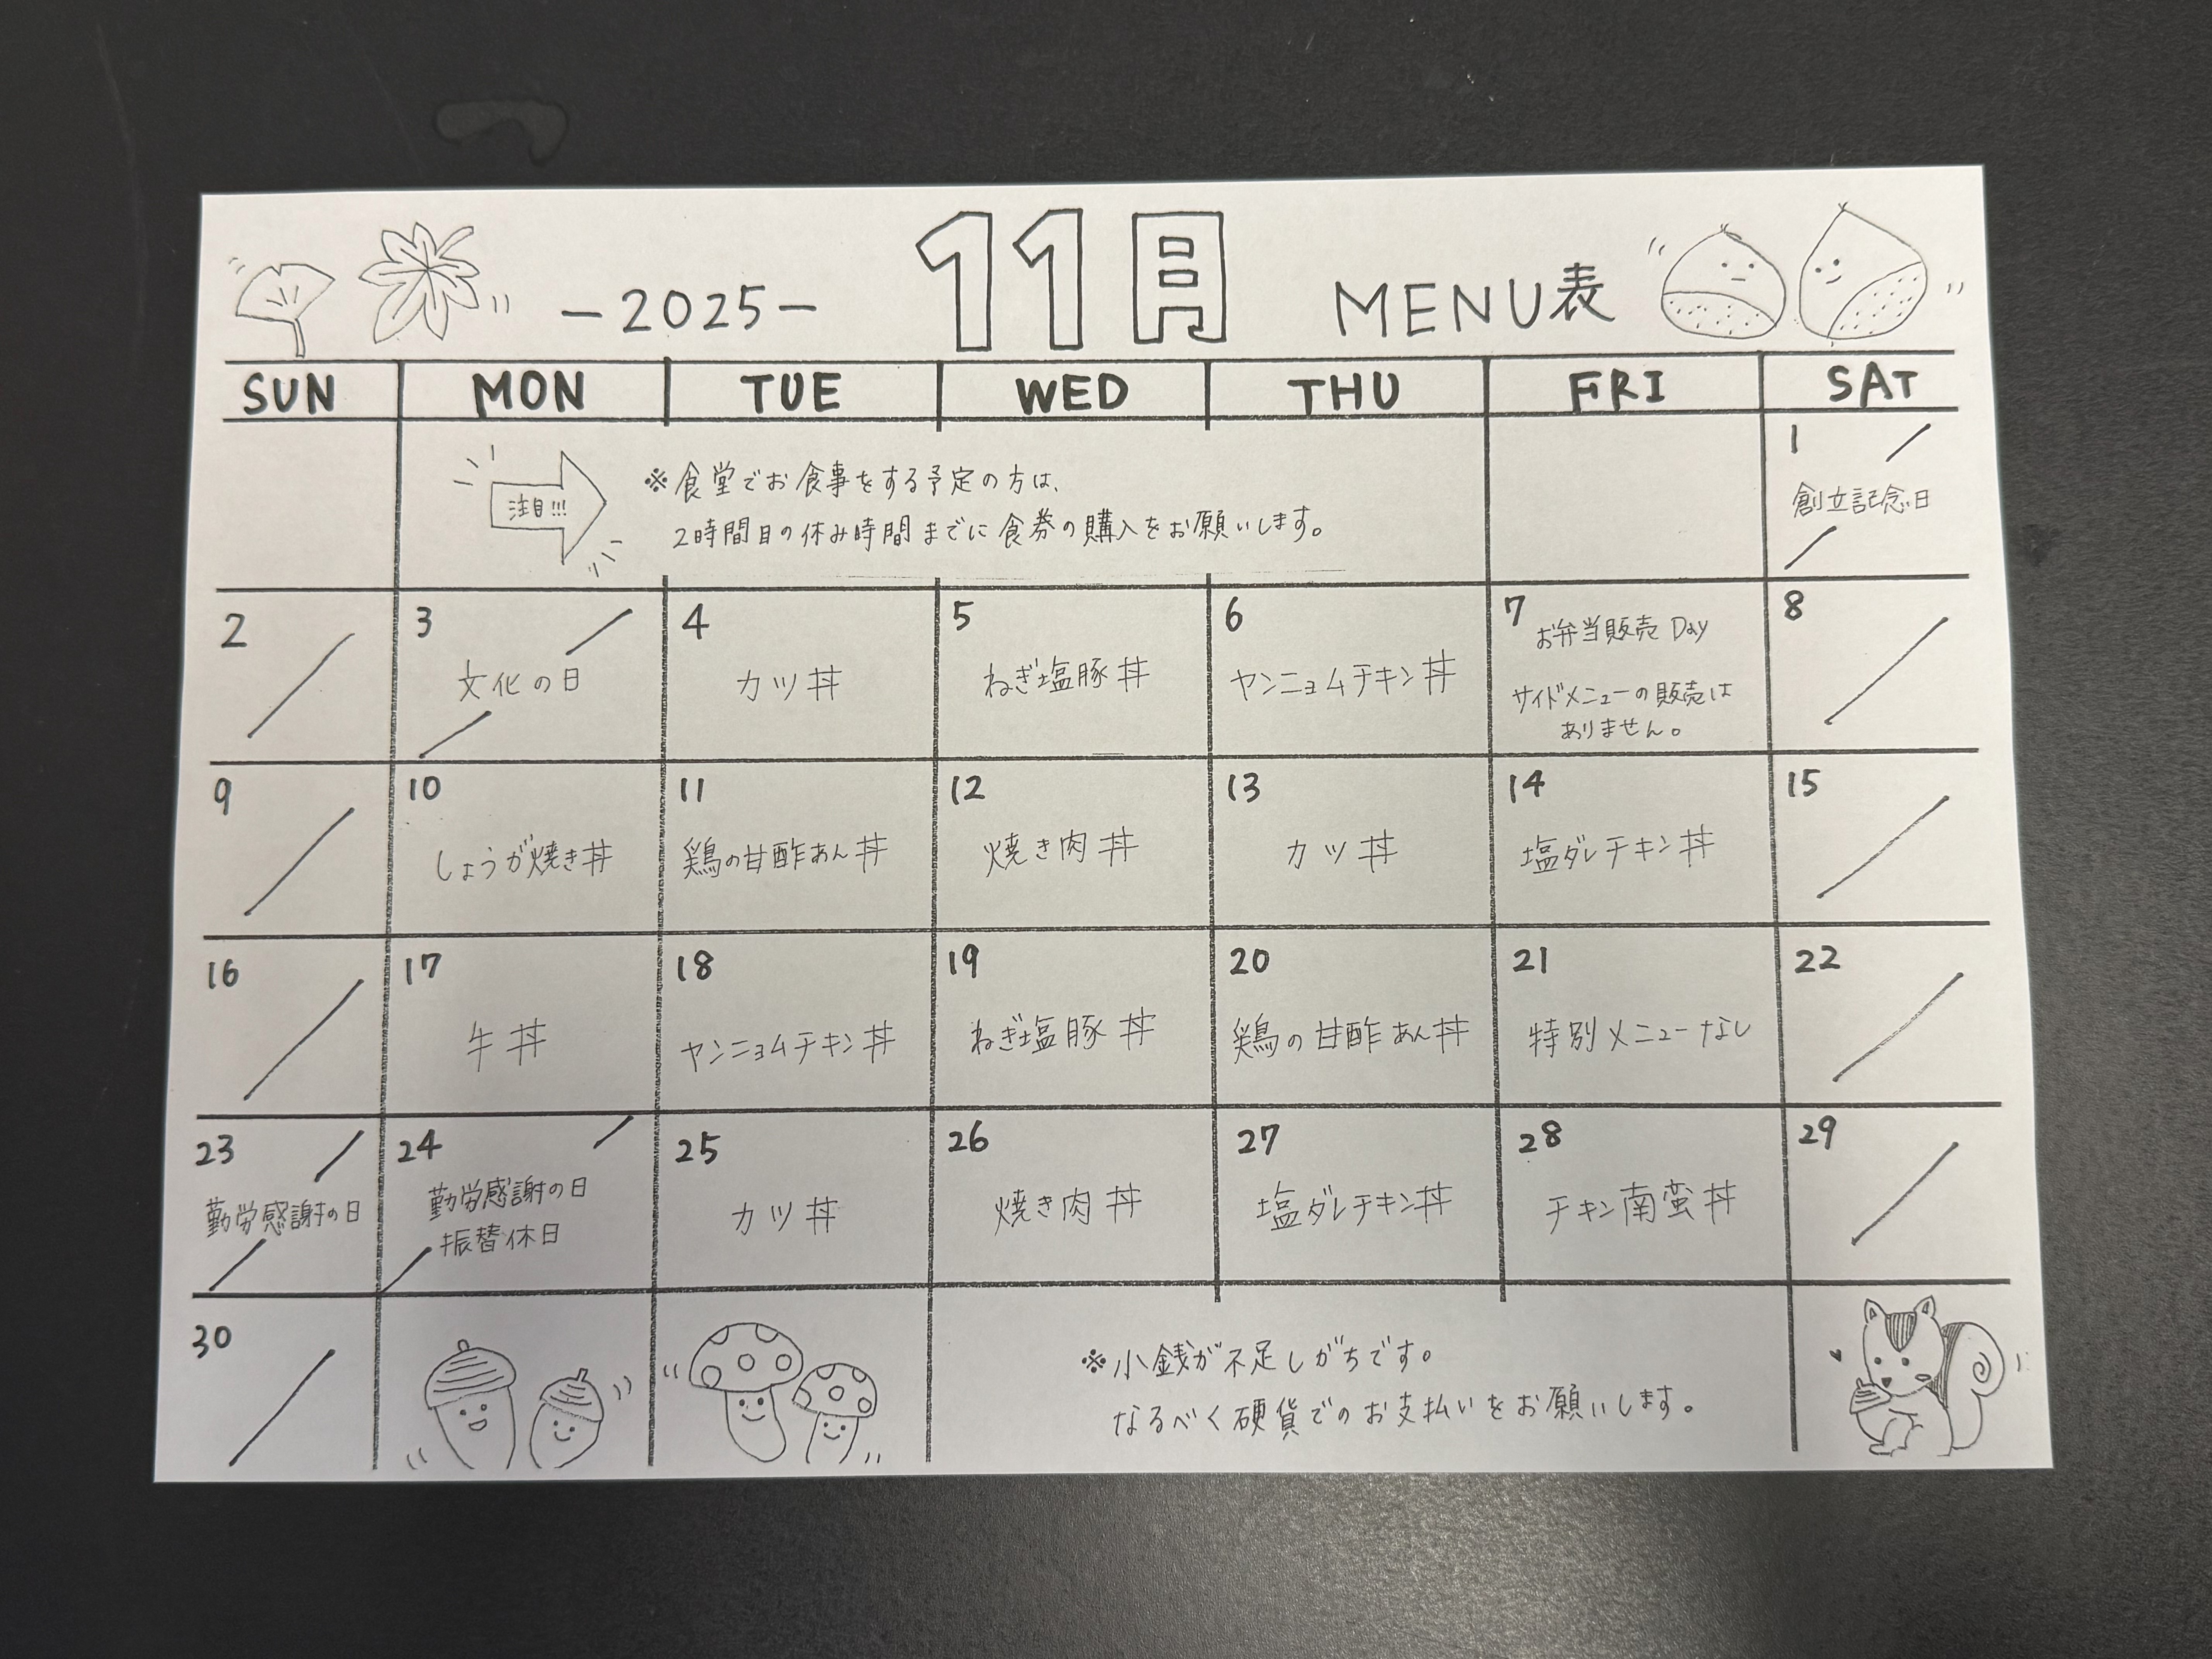 -2025- 11月 MENU表
SUN MON TUE WED THU FRI SAT
注目!!!
※食堂でお食事をする予定の方は、
2時間目の休み時間までに食券の購入をお願いします。
1
創立記念日
2
3
文化の日
4
カツ丼
5
ねぎ塩豚丼
6
ヤンニョムチキン丼
7 お弁当販売 Day
サイドメニューの販売は
ありません。
8
9
10
しょうが焼き丼
11
鶏の甘酢あん丼
12
焼き肉丼
13
カツ丼
14
塩ダレチキン丼
15
16
17
牛丼
18
ヤンニョムチキン丼
19
ねぎ塩豚丼
20
鶏の甘酢あん丼
21
特別メニューなし
22
23
勤労感謝の日
24
勤労感謝の日
振替休日
25
カツ丼
26
焼き肉丼
27
塩ダレチキン丼
28
チキン南蛮丼
29
30
※小銭が不足しがちです。
なるべく硬貨でのお支払いをお願いします。